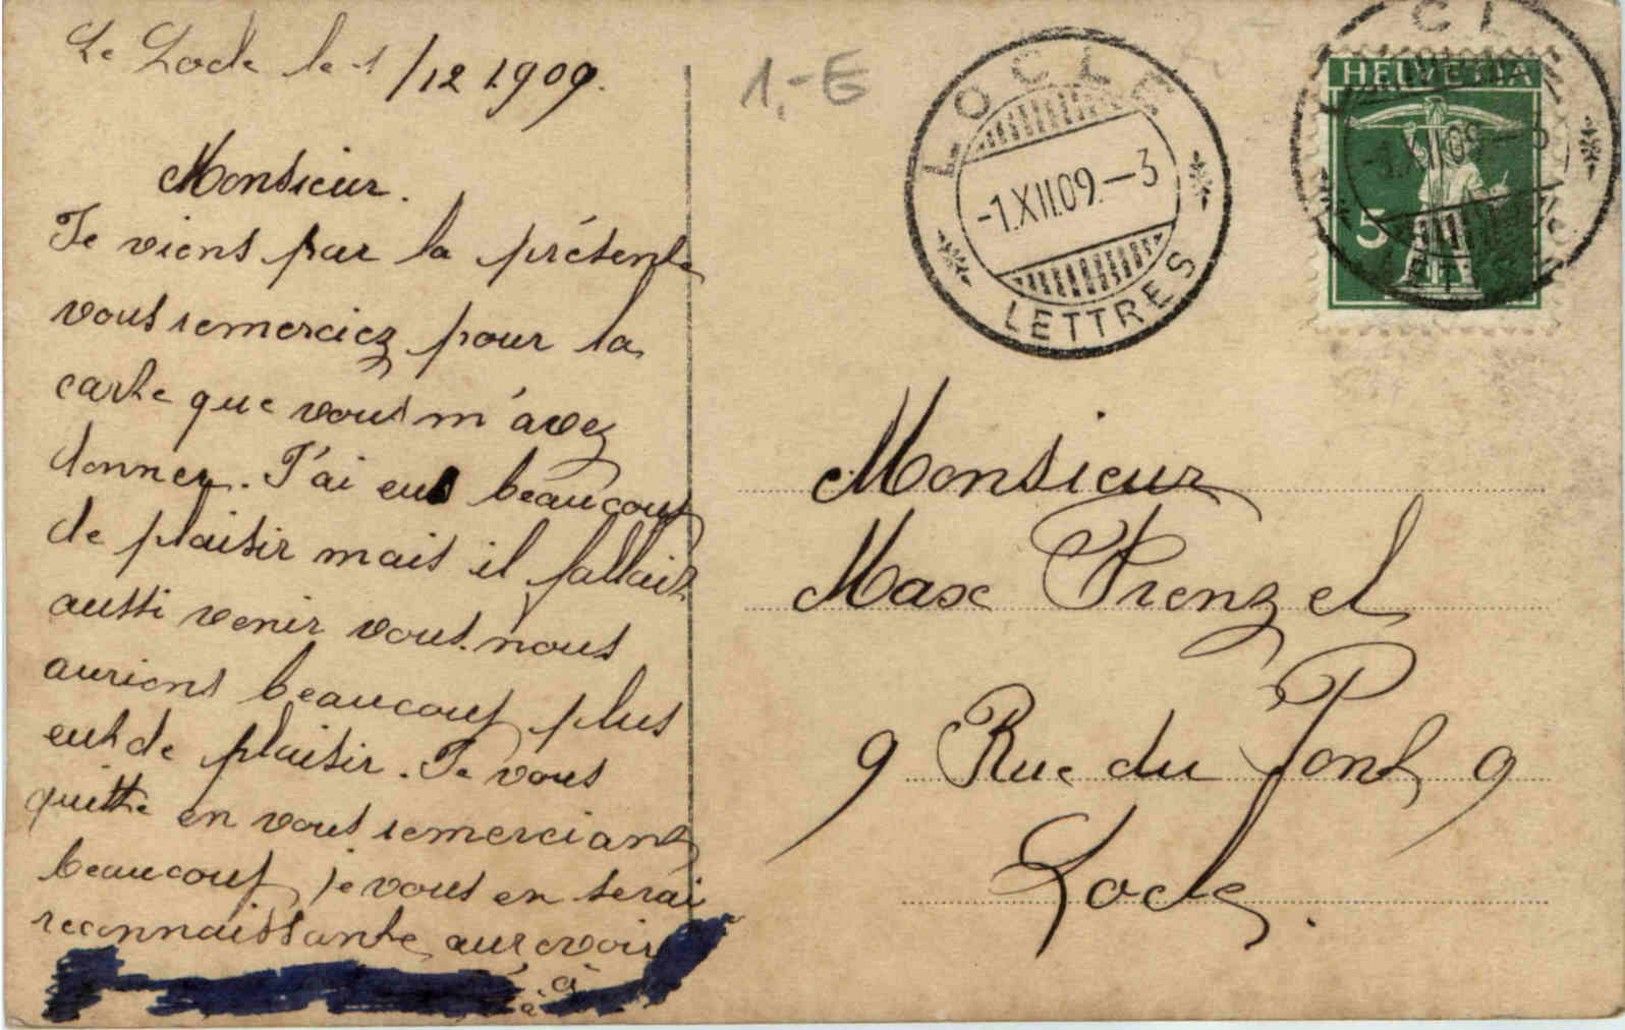 Le Locle le 1/12 1909.
Monsieur.
Je viens par la présente
vous remerciez pour la
carte que vous m'avez
donner. J'ai eus beaucoup
de plaisir mais il fallait
aussi venir vous nous
aurions beaucoup plus
eut de plaisir. Je vous
quitte en vous remerciant
beaucoup je vous en serai
reconnaissante aurevoir
à
à
1,-€
LOCLE
-1.XII.09.-3
LETTRES
HELVETIA
5
Monsieur
Max Frenzel
9 Rue du Pont 9
Locle.